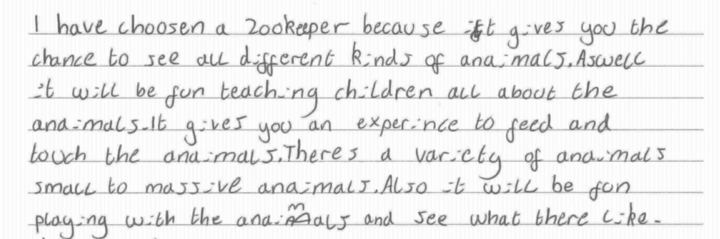 I have choosen a Zookeeper because it gives you the
chance to see all different kinds of anaimals. Aswell
it will be fun teaching children all about the
anaimals. It gives you an experince to feed and
touch the anaimals. Theres a variety of anaimals
small to massive anaimals. Also it will be fun
playing with the anaimals and see what there like.